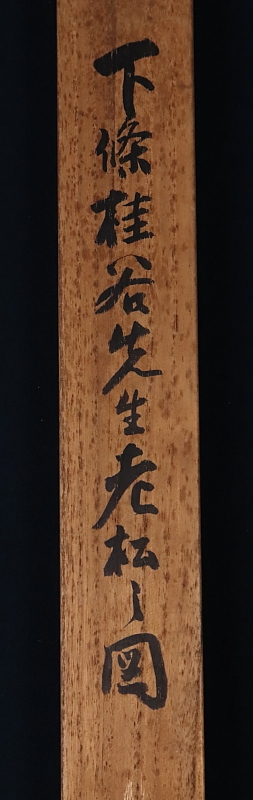 下條桂谷先生老松之図